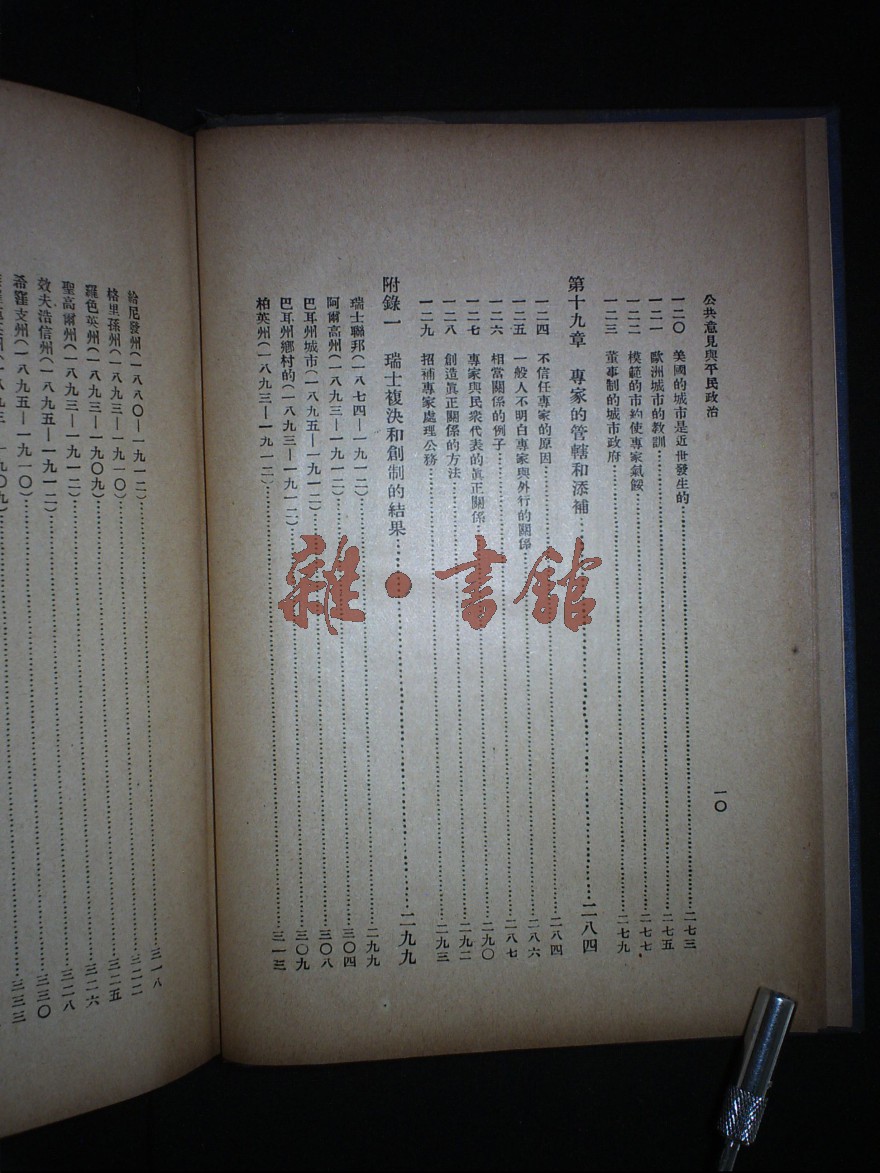 公共意見與平民政治
一〇
一二〇 美國的城市是近世發生的……二七三
一二一 歐洲城市的教訓……二七五
一二二 模範的市約使專家氣餒……二七七
一二三 董事制的城市政府……二七九
第十九章 專家的管轄和添補……二八四
一二四 不信任專家的原因……二八四
一二五 一般人不明白專家與外行的關係……二八六
一二六 相當關係的例子……二八七
一二七 專家與民衆代表的眞正關係……二九〇
一二八 創造眞正關係的方法……二九二
一二九 招補專家處理公務……二九三
附錄一 瑞士複決和創制的結果……二九九
瑞士聯邦(一八七四—一九一二)……二九九
阿爾高州(一八九三—一九一二)……三〇四
巴耳州城市(一八九五—一九一二)……三〇八
巴耳州鄉村的(一八九三—一九一二)……三〇九
柏英州(一八九三—一九一二)……三一三
給尼發州(一八八〇—一九一二)……三一八
格里孫州(一八九三—一九一〇)……三二二
羅色英州(一八九三—一九〇九)……三二五
聖高爾州(一八九三—一九一二)……三二六
效夫浩信州(一八九五—一九一二)……三二八
希窪支州(一八九五—一九一〇)……三三〇
三三三
雜·書館